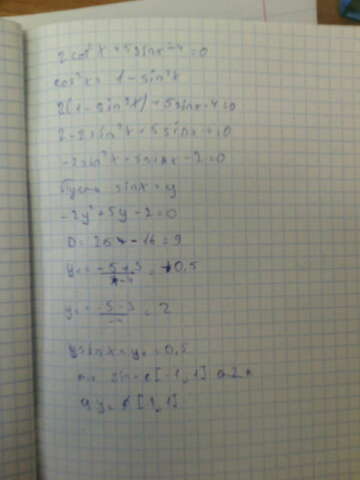 2cos²x+5sinx-4=0
cos²x=1-sin²x
2(1-sin²x)+5sinx-4=0
2-2sin²x+5sinx-4=0
-2sin²x+5sinx-2=0
Пусть sinx=y
-2y²+5y-2=0
D=25-16=9
y₁=(-5+3)/-4=0,5
y₂=(-5-3)/-4=2
sinx=y₁=0,5
sin [-1,1]
y₂ [-1,1]